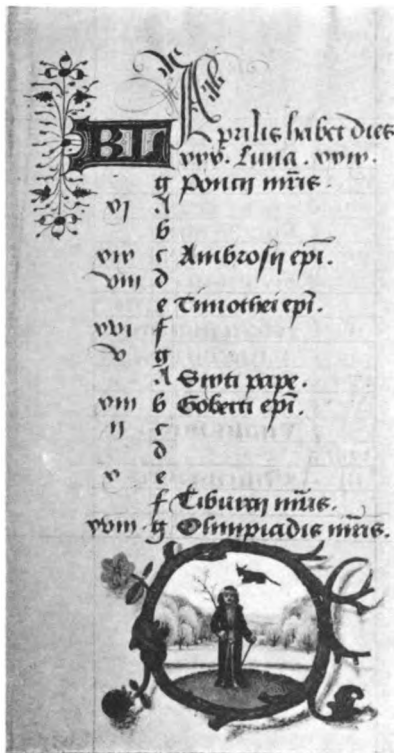 KL
Aprilis habet dies
xxx. Luna. xxix.
g Poncii mris.
xi A
b
xix c Ambrosij epi.
viii d
e Timothei epi.
xvi f
v g
A Sixti pape.
xiii b Goberti epi.
ii c
d
x e
f Tiburtii mris.
xviii g Olimpiadis mris.